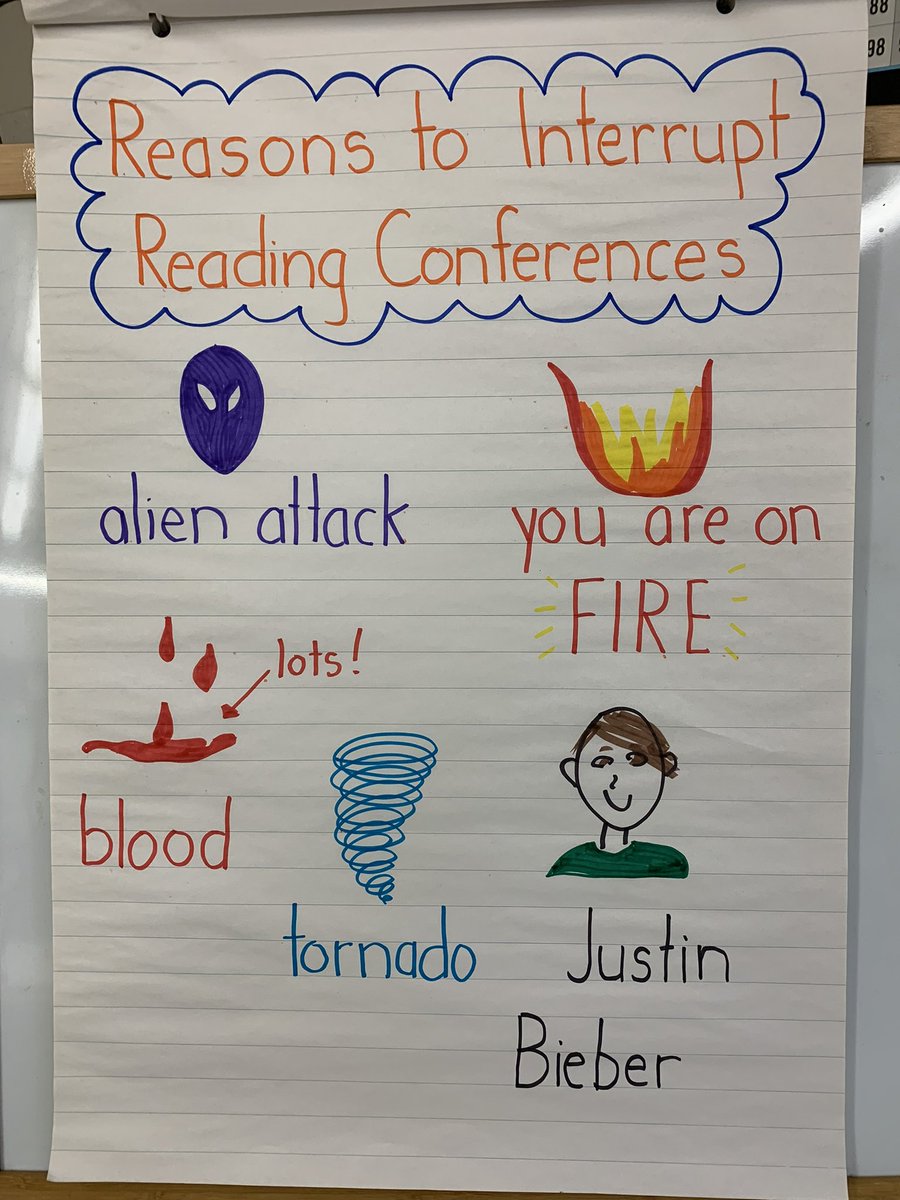 Reasons to Interrupt
Reading Conferences
alien attack
you are on
FIRE
lots!
blood
tornado
Justin
Bieber
88
98